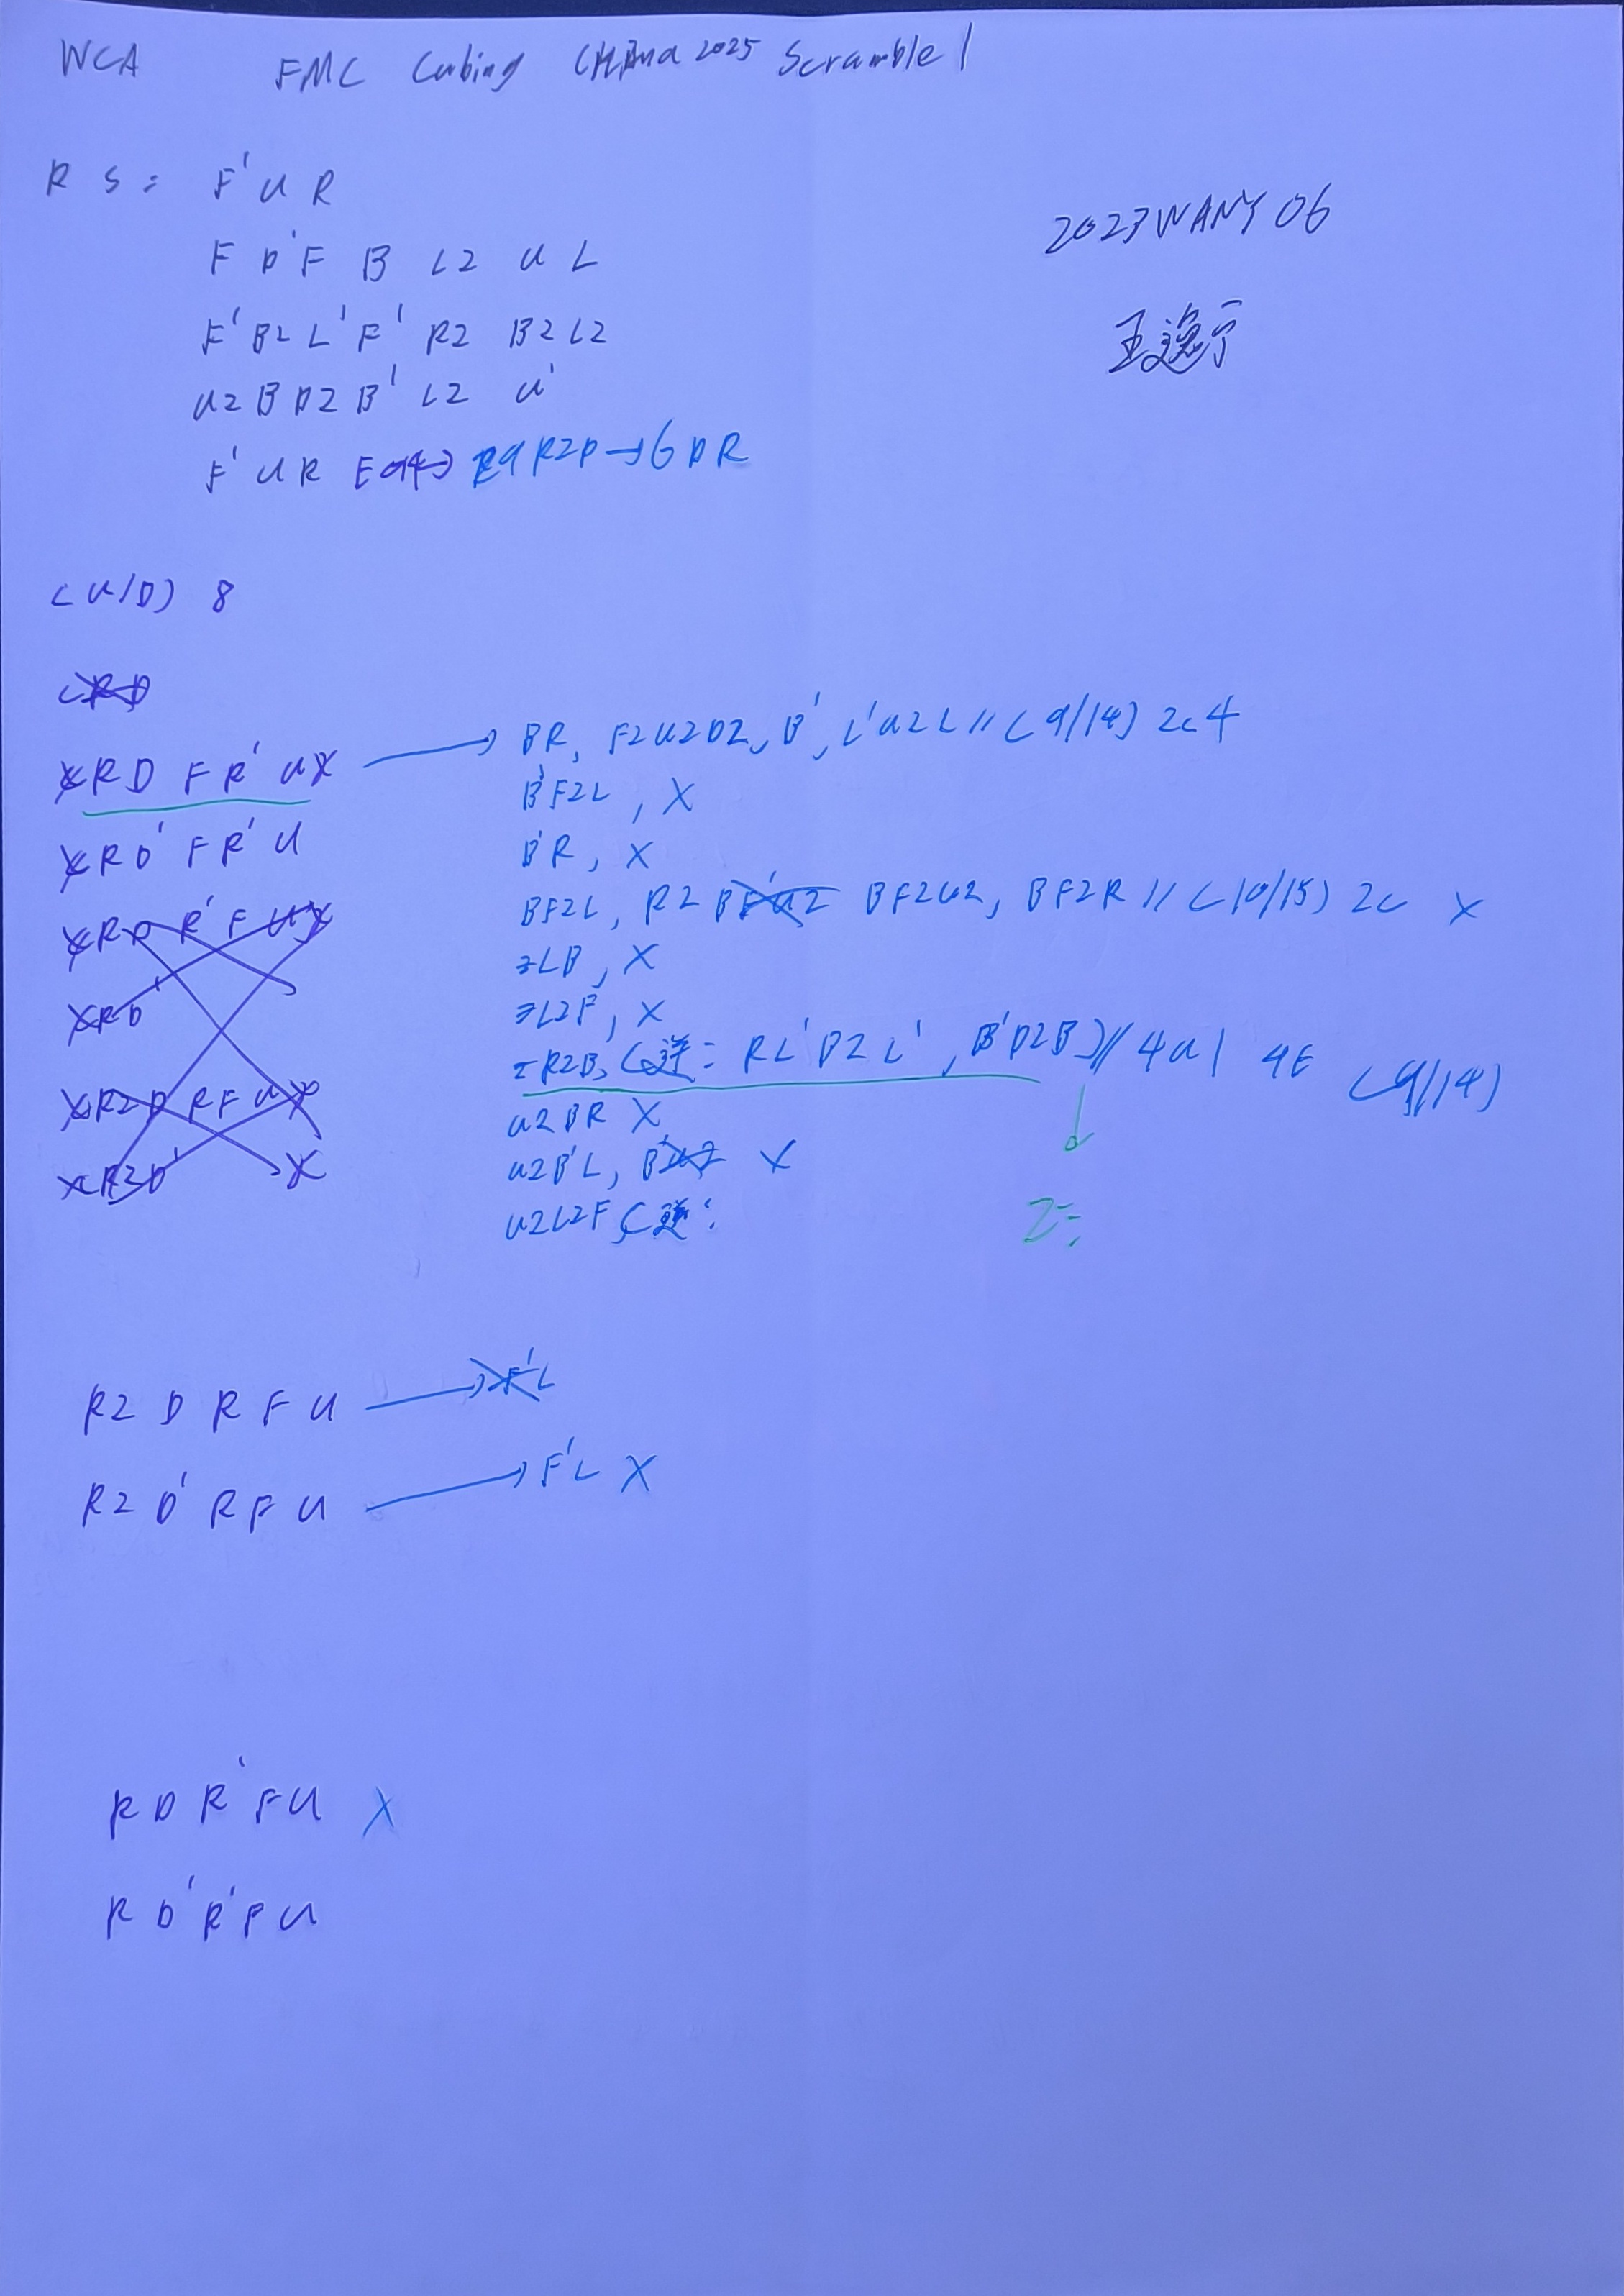 WCA FMC Cubing CHina 2025 Scramble 1
RS: F' U R
F D' F B L2 U L
F' B2 L' F' R2 B2 L2
U2 B D2 B' L2 U'
F' U R
→ 6 DR
2023WANY06
王逸宁
(U/D) 8
RD
R D F R' U →
BR, F2U2D2, B', L'U2L // (9/14) 2c4
B'F2L, X
R D' F R' U
B'R, X
BF2L, R2 BF2U2, BF2R // (10/15) 2c X
R D R' F U
LB, X
R D'
L2F, X
R2B, (逆: RL'D2L', B'D2B) // 4a1 4E (9/14)
R2 D R F U
U2BR X
R2D' X
U2B'L, X
U2L2F, (逆:
R2 D R F U → F'L
R2 D' R F U → F'L X
R D R' F U X
R D' R' F U